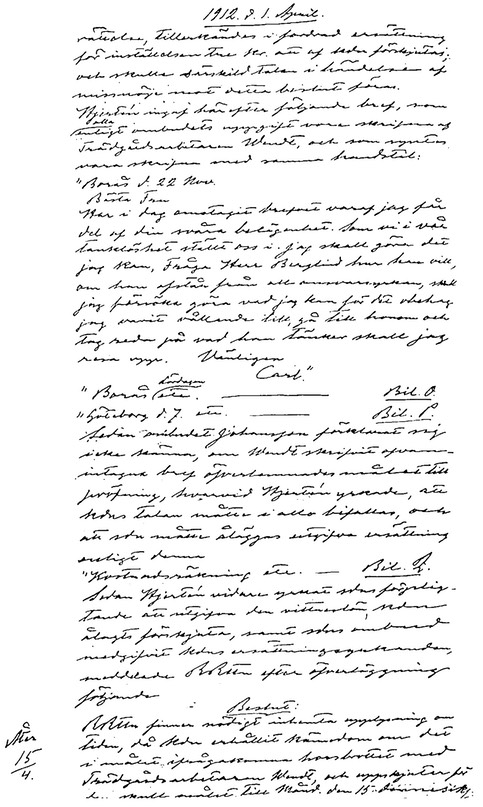 1912. d. 1. April.
rättelse, tillerkändes i fordrad ersättning
för inställelsen tre kr. att af kdn förskjutas;
och skulle särskild talan i händelse af
missnöje mot detta beslut föras.
Hjertén ingaf härefter följande bref, som
alla
enligt ombudets uppgift vore skrifna af
Trädgårdsarbetaren Wendt, och som syntes
vara skrifna med samma handstil:
"Borås d. 22 Nov.
Bästa Fru
Har i dag emottagit brefvet varaf jag får
del af din svåra belägenhet. Som vi i vår
tanklöshet stället oss i. jag skall göra det
jag kan, Fråga Herr Berglind hur han vill,
om han afstår från allt ansvarsyrkan, skall
jag försöka göra vad jag kan för det obehag
jag varit vållande till, gå till honom och
tag reda på vad han tänker skall jag
resa upp. Vänligen
Carl."
lördagen
"Borås etc. Bil. O.
"Göteborg d. 7. etc. Bil. P.
Sedan ombudet Johansson förklarat sig
icke känna, om Wendt skrifvit ofvan-
intagna bref öfverlämnades målet till
pröfning, hvarvid Hjertén yrkade, att
kdns talan måtte i allo bifallas, och
att sdn måtte åläggas utgifva ersättning
enligt denna
"Kostnadsräkning etc. — Bil. R.
Sedan Hjertén vidare yrkat sdns förplig-
tande att utgifva den vittneslön, kdn
ålagts förskjuta, samt sdns ombud
medgifvit kdns ersättningsyrkanden,
meddelade RRtten efter öfverläggning
följande
Beslut:
RRtten finner nödigt inhemta upplysning om
tiden, då kdn erhållit kännedom om det
i målet ifrågakomna horsbrottet med
Trädgårdsarbetaren Wendt, och uppskjuter för
skull målet till Månd. den 15. dennes kl.
Åter
15/4.